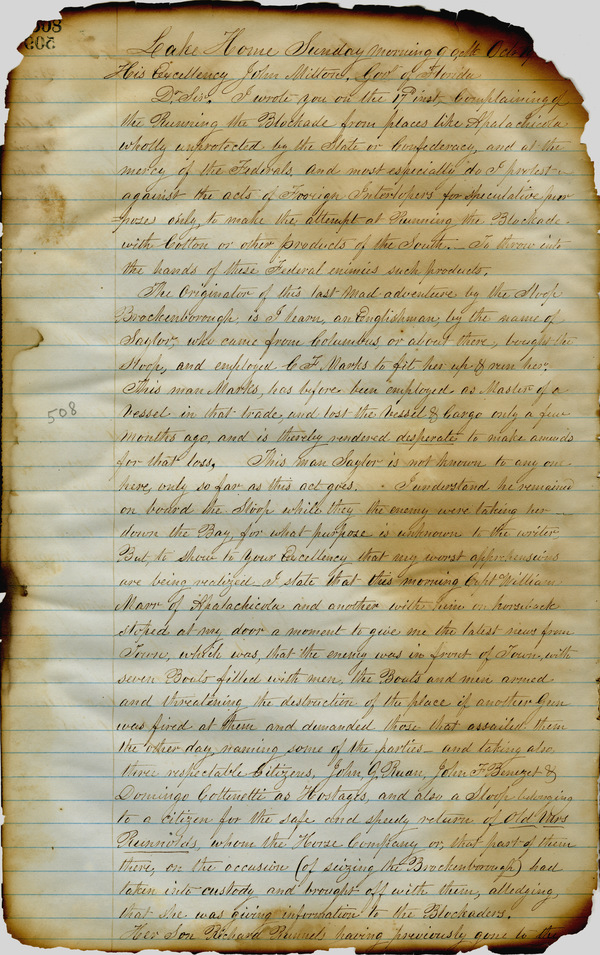 508
Lake Home Sunday morning 9 oclk Oct
His Excellency John Milton, Gov. of Florida
Dr Sir. I wrote you on the 17th inst, Complaining of
the Running the Blockade from places like Apalachicola
wholly unprotected by the State or Confederacy, and at the
mercy of the Federals, and most especially do I protest
against the acts of Foorign Interlopers for speculative pur
poses only, to make the attempt at Running the Blockade
with Cotton or other products of the South. — To throw into
the hands of these Federal enimies such products.
The Originator of this last mad adventure by the Sloop
Brockenborough, is I learn, an Englishman, by the name of
Saylor, who came from Columbus or about there, bought the
Sloop, and employed C F Marks to fit her up & run her.
This man Marks, has before been employed as Master of a
Vessel in that trade, and lost the Vessel & Cargo only a few
months ago, and is thereby rendered desperate to make amends
for that loss. This man Saylor is not known to any one
here, only so far as this act goes. I understand he remained
508
on board the Sloop while they the enemy were taking her
down the Bay, for what purpose is unknown to the writer
But, to show to your Excellency that my worst apprehensions
are being realized I state that this morning Capt William
Marr of Apalachicola and another with him on horseback
stoped at my door a moment to give me the latest news from
Town, which was, that the enemy was in front of Town, with
seven Boats filled with men, the Boats and men armed
and threatening the destruction of the place if another Gun
was fired at them and demanded those that assailed them
the other day, naming some of the parties — and taking also
three respectable Citizens, John G Ruan, John F Benezet &
Domingo Cottinetti as Hostages, and also a Sloop belonging
to a citizen for the safe and speedy return of Old Mrs
Runnolds, whom the Horse Company or, that part of them
there, on the occasion (of seizing the Brockenborough) had
taken into custody and brought off with them, alledging
that she was giving information to the Blockaders.
Her Son Richard Runnels having previously gone to the